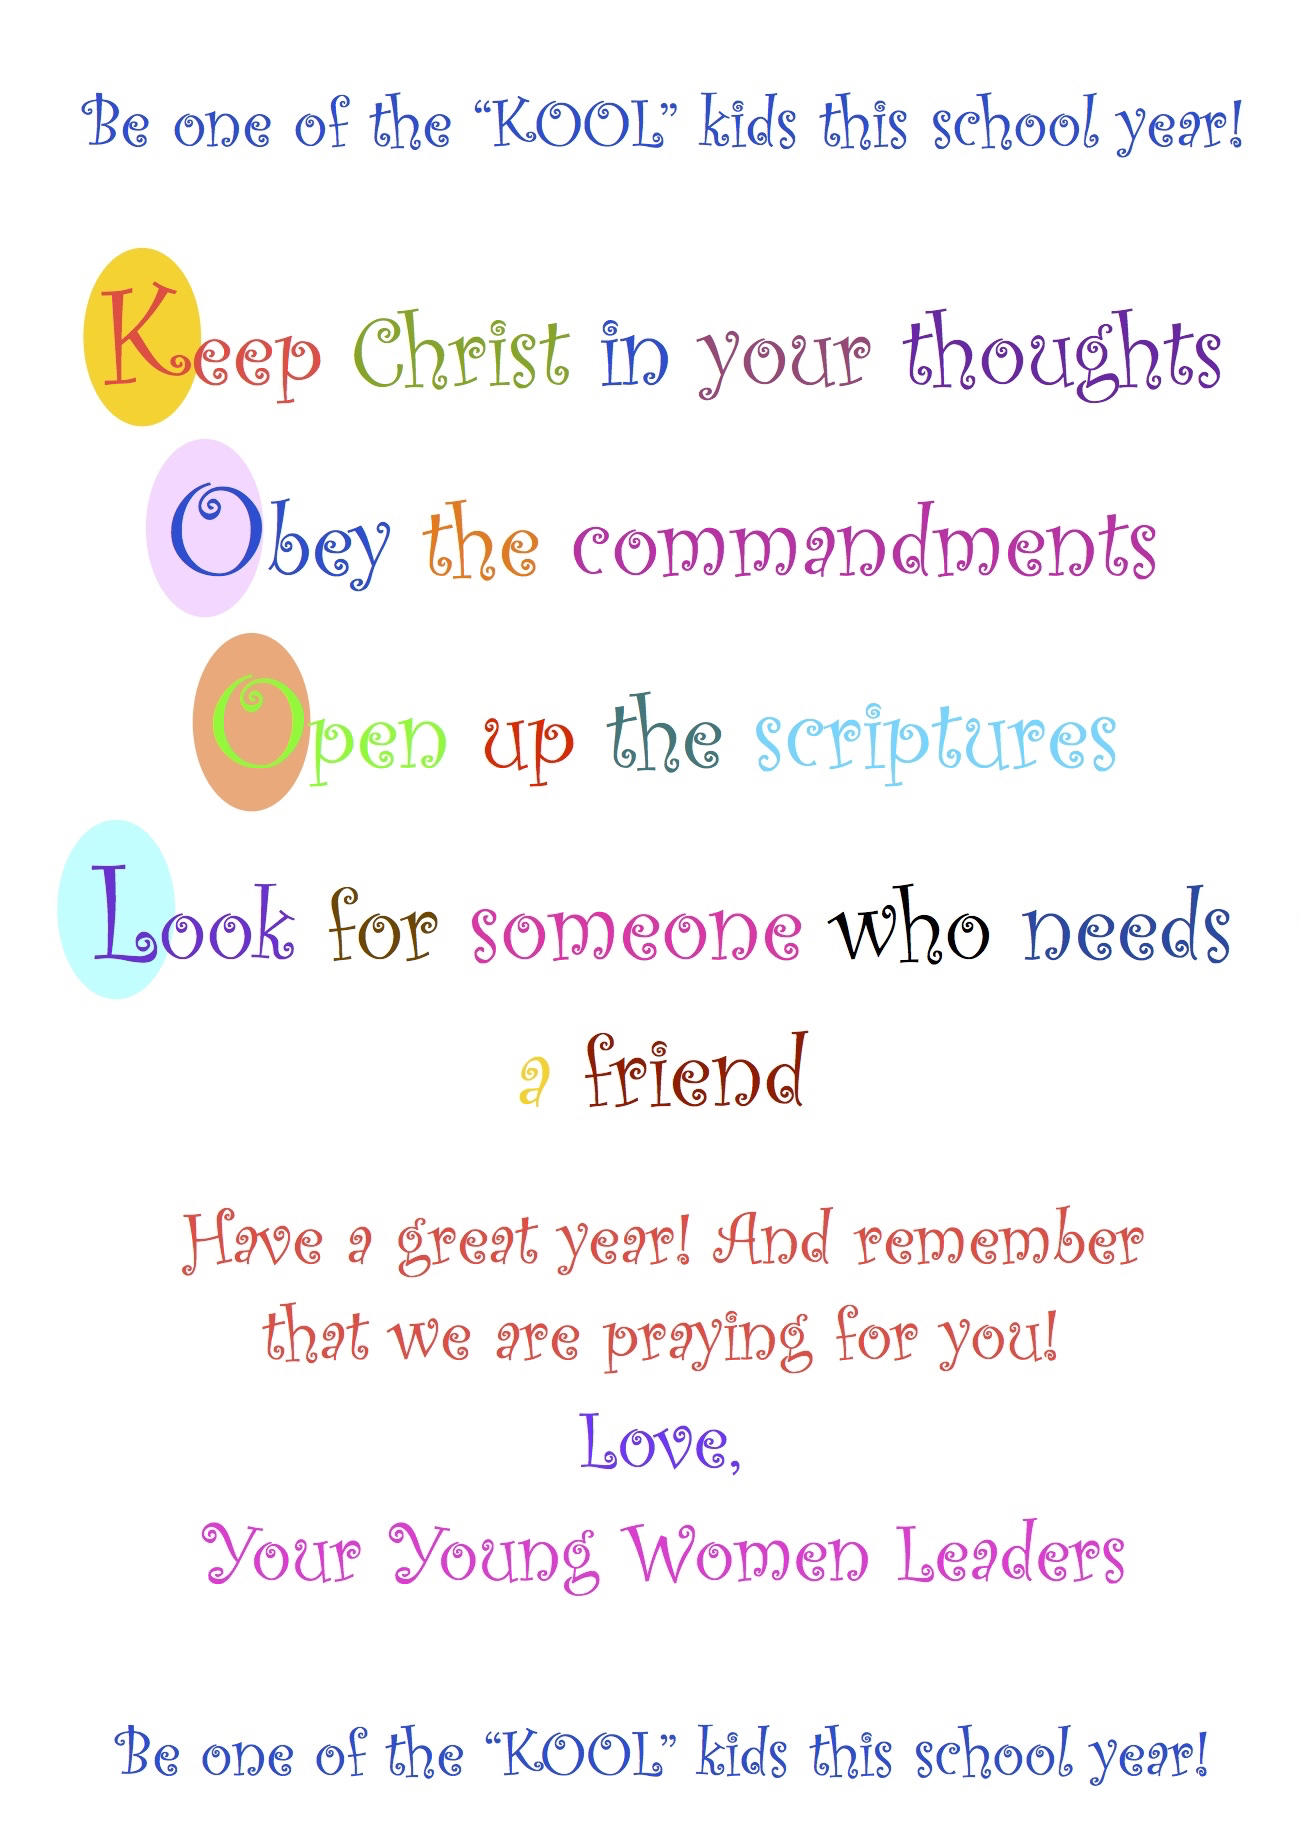 Be one of the “KOOL” kids this school year!
Keep Christ in your thoughts
Obey the commandments
Open up the scriptures
Look for someone who needs
a friend
Have a great year! And remember
that we are praying for you!
Love,
Your Young Women Leaders
Be one of the “KOOL” kids this school year!